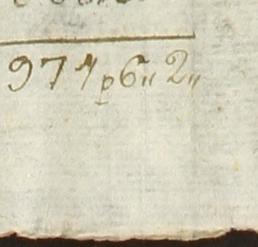 971 p 6 " 2 "